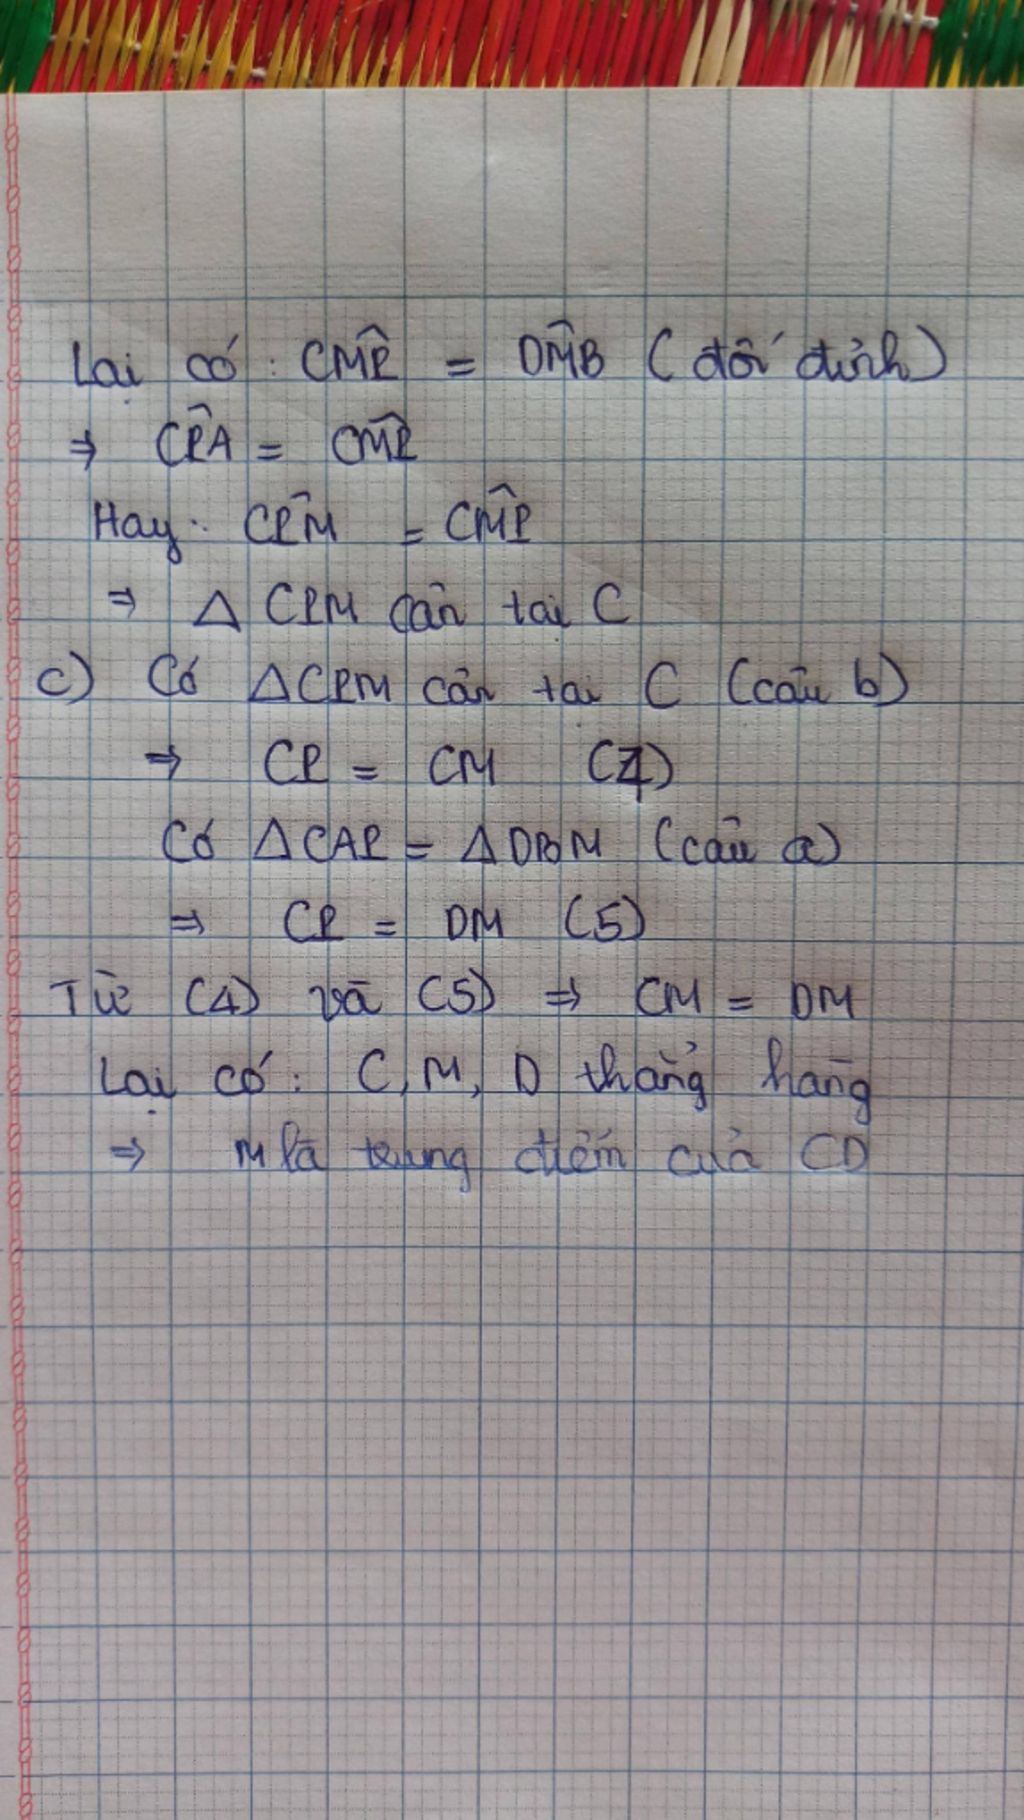 Lại có: CM̂P = DM̂B (đối đỉnh)
⇒ CP̂A = CM̂P
Hay: CP̂M = CM̂P
⇒ Δ CPM cân tại C
c) Có ΔCPM cân tại C (câu b)
⇒ CP = CM (4)
Có ΔCAP = ΔDBM (câu a)
⇒ CP = DM (5)
Từ (4) và (5) ⇒ CM = DM
Lại có: C, M, D thẳng hàng
⇒ M là trung điểm của CD